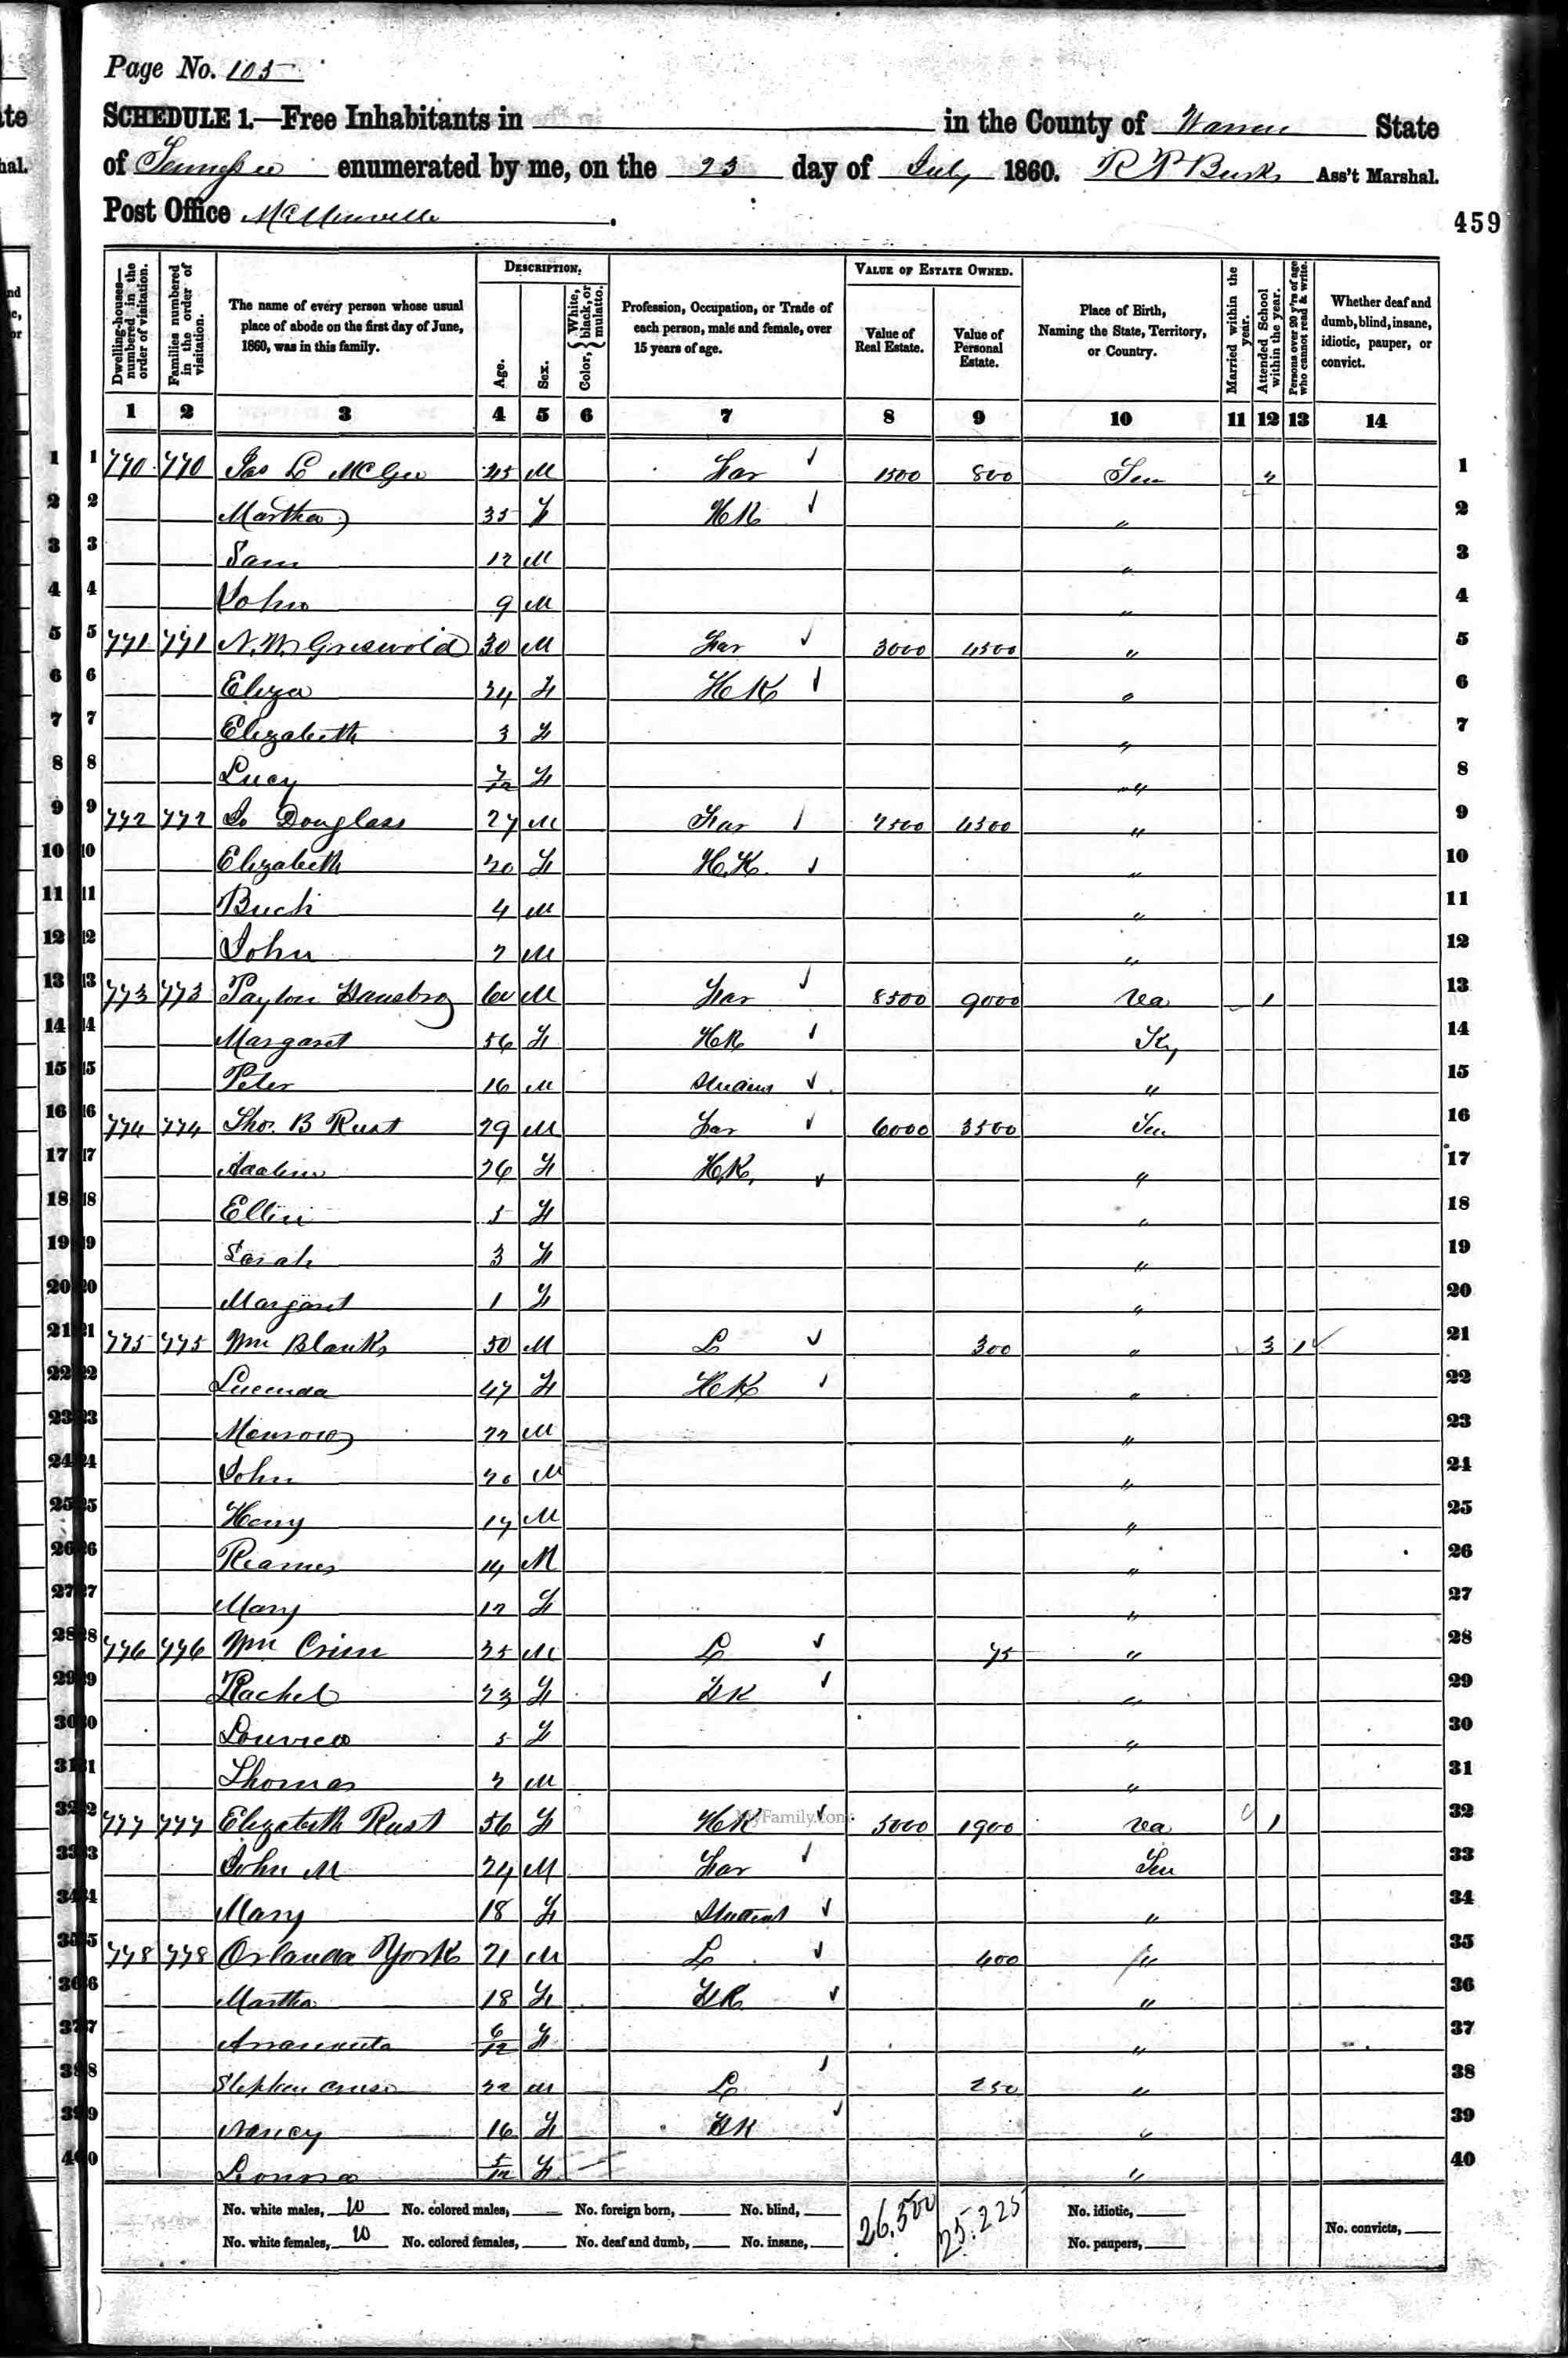 Page No. 105
SCHEDULE 1.—Free Inhabitants in in the County of Warren State
of Tennessee enumerated by me, on the 23 day of July 1860. Ass't Marshal.
Post Office McMinnville
459
Dwelling-houses—numbered in the order of visitation. Families numbered in the order of visitation. The name of every person whose usual place of abode on the first day of June, 1860, was in this family. DESCRIPTION. Age. Sex. Color, {White, black, or mulatto. Profession, Occupation, or Trade of each person, male and female, over 15 years of age. VALUE OF ESTATE OWNED. Value of Real Estate. Value of Personal Estate. Place of Birth, Naming the State, Territory, or Country. Married within the year. Attended School within the year. Persons over 20 y'rs of age who cannot read & write. Whether deaf and dumb, blind, insane, idiotic, pauper, or convict.
1 2 3 4 5 6 7 8 9 10 11 12 13 14
1 770 770 Jas L McGee M Far 1500 800 Ten 2 1
2 Martha 35 F HK " 2
3 Sam 12 M " 3
4 John 9 M " 4
5 771 771 N. W. Griswold 30 M Far 3000 4500 " 5
6 Eliza 24 F HK " 6
7 Elizabeth 3 F " 7
8 Lucy 7/12 F " 8
9 772 772 Jo Douglass 27 M Far 4300 " 9
10 Elizabeth 20 F H.K. " 10
11 Buch 4 M " 11
12 John 2 M " 12
13 773 773 Payton 60 M Far 8500 9000 Va 1 13
14 Margaret 56 F HK Ky 14
15 Peter 16 M " 15
16 774 774 Tho. B Rust 29 M Far 6000 3500 Ten 16
17 Adaline 26 F HK. " 17
18 Ellin 5 F " 18
19 Sarah 3 F " 19
20 Margaret 1 F " 20
21 775 775 Wm Blanks 50 M L 300 " 3 1 21
22 Lucinda 47 F HK " 22
23 Monroe 22 M " 23
24 John 20 M " 24
25 Henry 17 M " 25
26 14 M " 26
27 Mary 12 F " 27
28 776 776 Wm Crim 25 M L 75 " 28
29 Rachel 23 F HK " 29
30 5 F " 30
31 Thomas 2 M " 31
32 777 777 Elizabeth Rust 56 F HK 5000 1900 Va 1 32
33 John M 24 M Far Ten 33
34 Mary 18 F Student " 34
35 778 778 Orlanda York 21 M L 400 " 35
36 Martha 18 F HK " 36
37 6/12 F " 37
38 Stephen 22 M L 250 " 38
39 Nancy 16 F HK " 39
40 5/12 F " 40
MyFamily.com
No. white males, 20 No. colored males, No. foreign born, No. blind, 26,500 25.225 No. idiotic,
No. white females, 20 No. colored females, No. deaf and dumb, No. insane, No. paupers, No. convicts,